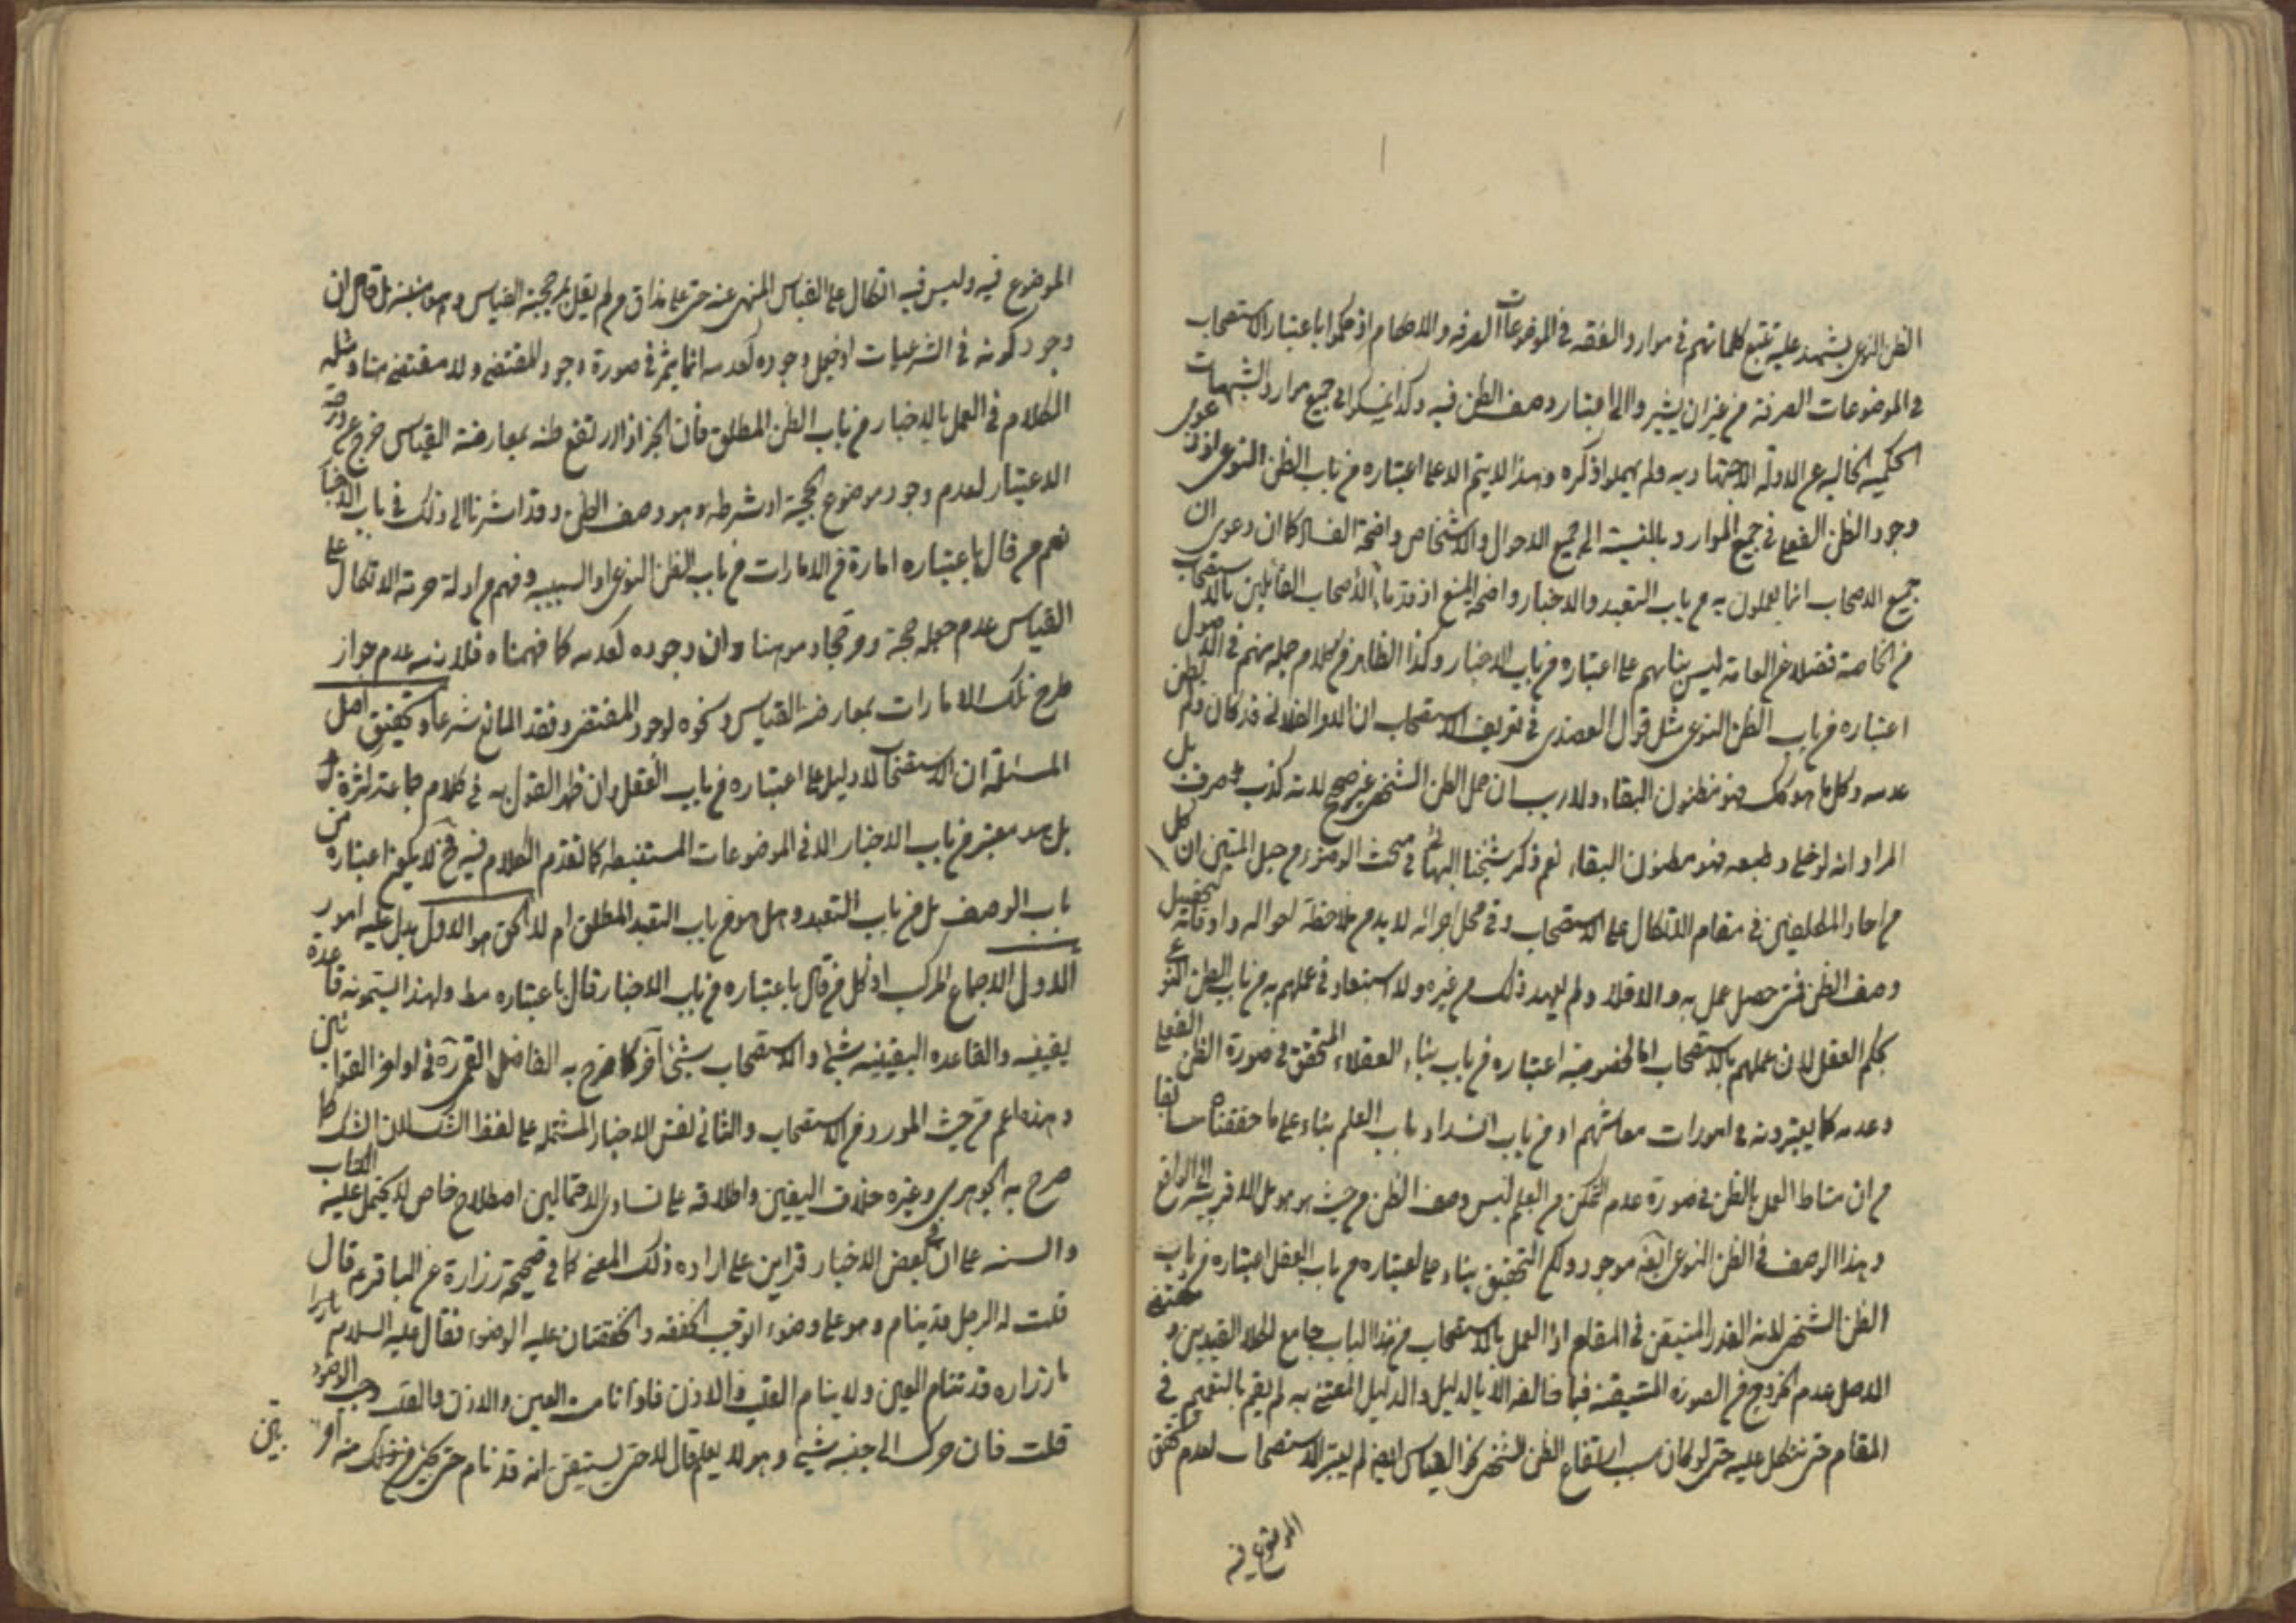 الظن النوعى يشهد عليه تتبع كلماتهم فى موارد الفقه فى الموضوعات الصرفه والاحكام اذ حكموا باعتبار الاستصحاب
فى الموضوعات الصرفة من غير ان يشيروا الى اعتبار وصف الظن فيه وكذا فى جميع موارد الشبهات
الحكميه الخاليه عن الادلة الاجتهاديه ولم يهملوا ذكره وهذا لا يتم الا على اعتباره من باب الظن النوعى لان دعوى
وجود الظن الفعلى فى جميع الموارد بالنسبة الى جميع الاحوال والاشخاص واضحة الفساد كما ان دعوى ان
جميع الاصحاب انما يعملون به من باب التعبد والاخبار واضحة المنع اذ قدماء الاصحاب القائلين بالاستصحاب
من الخاصة فضلا عن العامة ليس بنائهم على اعتباره من باب الاخبار وكذا الظاهر من كلام جملة منهم فى الاصول
اعتباره من باب الظن النوعى مثل قول العضدى فى تعريف الاستصحاب ان الامر الفلانى قد كان ولم يظن
عدمه وكل ما هو كك فهو مظنون البقاء ولا ريب ان حمل الظن الشخصى غير صحيح لانه كذب صرف بل
المراد انه لو خلى وطبعه فهو مظنون البقاء نعم ذكر شيخنا البهائى فى مبحث الوضوء من حبل المتين ان كل
من احاد المكلفين فى مقام الاتكال على الاستصحاب وفى محل اجرائه لا بد من ملاحظة احواله واوقاته لتحصيل
وصف الظن فمتى حصل عمل به والا فلا ولم يعهد ذلك من غيره ولا استبعاد فى عملهم به من باب الظن النوعى
بحكم العقل لان عملهم بالاستصحاب اما لخصوصية اعتباره من باب بناء العقلاء المتحقق فى صورة الظن الفعلى
وعدمه كما يعتبرونه فى امورات معاشهم او من باب انسداد باب العلم بناء على ما حققناه سابقا
من ان مناط العمل بالظن فى صورة عدم التمكن من العلم ليس وصف الظن من حيث هو هو بل الاقربيه الى الواقع
وهذا الوصف فى الظن النوعى ايضا موجود ولكن التحقيق بناء على اعتباره من باب العقل اعتباره من باب
الظن الشخصى لانه القدر المتيقن فى المقام اذ العمل بالاستصحاب من هذا الباب جامع لكلا القيدين ومقتضى
الاصل عدم الخروج من الصورة المتيقنة فيما خالفه الا بالدليل والدليل المعتنى به لم يقم بالتعميم فى
المقام حتى نتكل عليه حتى لو كان سبب ارتفاع الظن الشخصى القياس ايضا لم يعتبر الاستصحاب لعدم تحقق
الموضوع فيه
الموضوع فيه وليس فيه اتكال على القياس المنهى عنه حتى على مذاق من لم يقل بحجية القياس بل قال ان
وجود كونه فى الشرعيات وجوده كعدمه انما يثمر فى صورة وجود المقتضى ولا مقتضى هنا ومثله
الكلام فى العمل بالاخبار من باب الظن المطلق فان الخبر اذا ارتفع ظنه بمعارضة القياس خرج عن درجة
الاعتبار لعدم وجود موضوع الحجية او شرطه وهو وصف الظن وقد اشرنا الى ذلك فى باب الاخبار
نعم من قال باعتباره امارة من الامارات من باب الظن النوعى او السببيه وفهم من ادلة حرمة الاتكال على
القياس عدم جعله حجة ومرجحا وموهنا وان وجوده كعدمه كما فهمناه فلازمه عدم جواز
طرح تلك الامارات بمعارضة القياس ونحوه لوجود المقتضى وفقد المانع شرعا وتحقيق اصل
المسئلة ان الاستصحاب لا دليل على اعتباره من باب العقل وان ظهر القول به فى كلام جماعة كثيرة
بل هو معتبر من باب الاخبار الا فى الموضوعات المستنبطه كما تقدم الكلام فيه فح لا يكون اعتباره من
باب الوصف بل من باب التعبد وهل هو من باب التعبد المطلق ام لا الحق هو الاول يدل عليه امور
الاول الاجماع المركب اذ كل من قال باعتباره من باب الاخبار قال باعتباره مط ولهذا يسمونه قاعدة
يقينيه والقاعده اليقينيه شئ والاستصحاب شئ اخر كما صرح به الفاضل القمى ره فى اواخر القوانين
وهذه اعم من حيث المورد من الاستصحاب والثانى نفس الاخبار المشتمله على لفظ الشك لان الشك كما
صرح به الجوهرى وغيره خلاف اليقين واطلاقه على تساوى الاحتمالين اصطلاح خاص لا يحمل عليه الكتاب
والسنه على ان فى بعض الاخبار قراين على اراده ذلك المعنى كما فى صحيحة زرارة عن الباقر ع قال
قلت له الرجل قد ينام وهو على وضوء ا توجب الخفقه والخفقتان عليه الوضوء فقال عليه السلام
يا زراره قد تنام العين ولا ينام القلب والاذن فاذا نامت العين والاذن والقلب وجب الوضوء
قلت فان حرك الى جنبه شئ وهو لا يعلم قال لا حتى يستيقن انه قد نام حتى يجئ من ذلك امر
بيّن